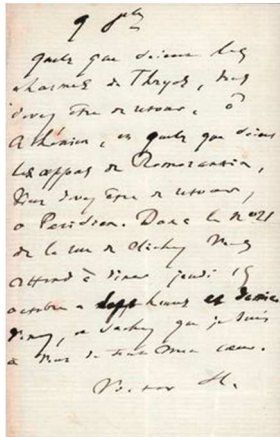 9 8bre
Quels que soient les
charmes de Thryes, vous
devez être de retour, ô
Athénien, et quels que soient
les appas de Romorantin,
vous devez être de retour,
ô Parisien. Donc le n° 21
de la rue de Clichy vous
attend à dîner jeudi 15
octobre à sept heures et demie
Venez, et sachez que je suis
à vous de tout mon cœur.
Victor H.